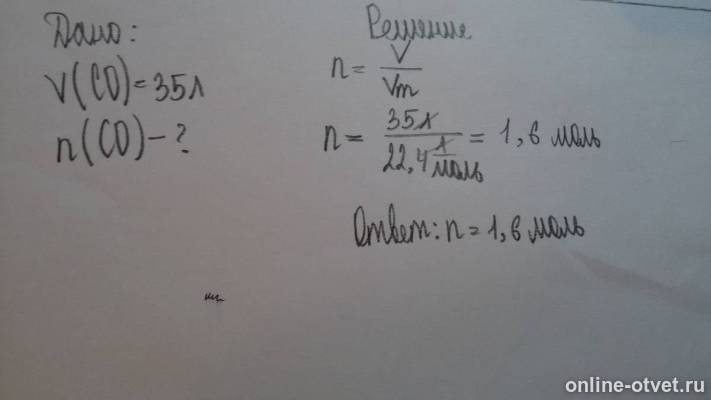 Дано:
V(CO)=35л
n(CO)-?
Решение
n = V/Vm
n = 35л/22,4 л/моль = 1,6 моль
Ответ: n = 1,6 моль
online-otvet.ru